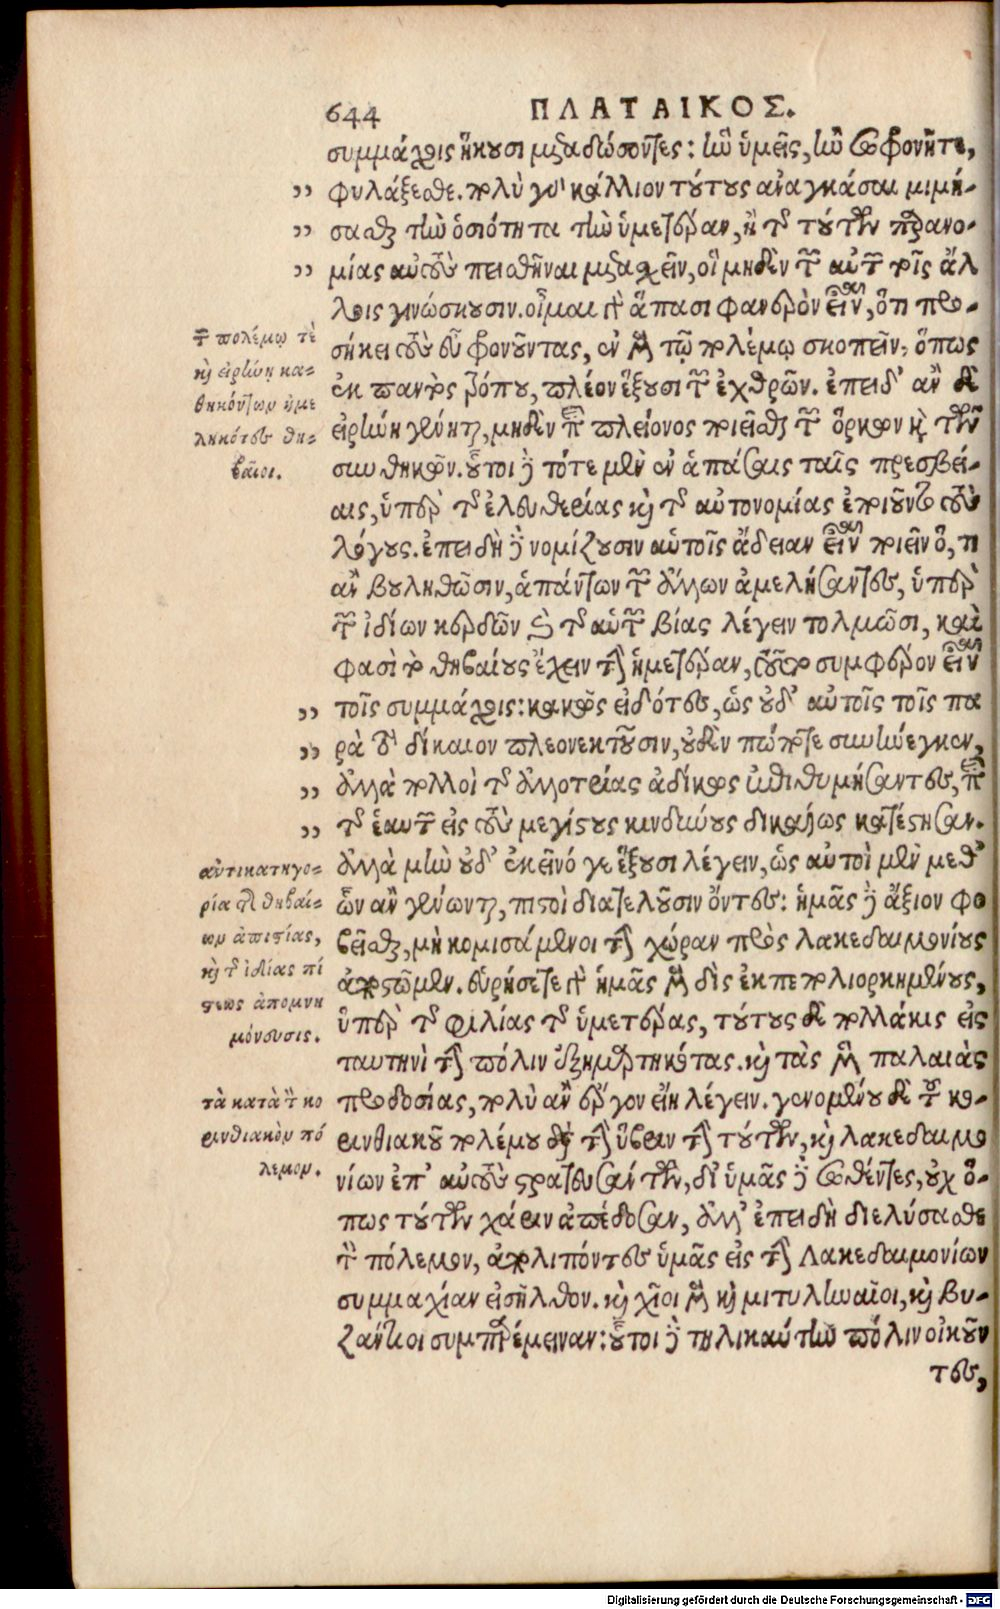 644 ΠΛΑΤΑΙΚΟΣ.
συμμάχοις ἥκουσι μεταδώσοντες: ἣν ὑμεῖς, ἢν σωφρονῆτε,
„ φυλάξεσθε. πολὺ γὰρ κάλλιον τούτους ἀναγκάσαι μιμή-
„ σασθαι τὴν ὁσιότητα τὴν ὑμετέραν, ἢ τῆς τούτων παρανο-
„ μίας αὐτοὺς πεισθῆναι μετασχεῖν, οἳ μηδὲν τῶν αὐτῶν τοῖς ἄλ
λοις γινώσκουσιν. οἶμαι γὰρ ἅπασι φανερὸν εἶναι, ὅτι προ-
σήκει τοὺς εὖ φρονοῦντας, ἐν μὲν τῷ πολέμῳ σκοπεῖν, ὅπως
ἐκ παντὸς τρόπου, πλέον ἕξουσι τῶν ἐχθρῶν. ἐπειδ' ἂν δὲ
εἰρήνη γένηται, μηδὲν περὶ πλείονος ποιεῖσθαι τῶν ὅρκων καὶ τῶν
συνθηκῶν. οὗτοι δὲ τότε μὲν ἐν ἁπάσαις ταῖς πρεσβεί-
αις, ὑπὲρ τῆς ἐλευθερίας καὶ τῆς αὐτονομίας ἐποιοῦντο τοὺς
λόγους. ἐπειδὴ δὲ νομίζουσιν αὑτοῖς ἄδειαν εἶναι ποιεῖν ὅ, τι
ἂν βουληθῶσιν, ἁπάντων τῶν ἄλλων ἀμελήσαντες, ὑπὲρ
τῶν ἰδίων κερδῶν καὶ τῆς αὑτῶν βίας λέγειν τολμῶσι, καὶ
φασὶ τὸ θηβαίους ἔχειν τὴν ἡμετέραν, τοῦτο συμφέρον εἶναι
„ τοῖς συμμάχοις: κακῶς εἰδότες, ὡς οὐδ' αὐτοῖς τοῖς πα
„ ρὰ τὸ δίκαιον πλεονεκτοῦσιν, οὐδὲν πώποτε συνήνεγκεν,
„ ἀλλὰ πολλοὶ τῆς ἀλλοτρίας ἀδίκως ἐπιθυμήσαντες, περὶ
„ τῆς ἑαυτῶν εἰς τοὺς μεγίστους κινδύνους δικαίως κατέστησαν.
ἀλλὰ μὴν οὐδ' ἐκεῖνό γε ἕξουσι λέγειν, ὡς αὐτοὶ μὲν μεθ'
ὧν ἂν γένωνται, πιστοὶ διατελοῦσιν ὄντες: ἡμᾶς δὲ ἄξιον φο
βεῖσθαι, μὴ κομισάμενοι τὴν χώραν πρὸς λακεδαιμονίους
ἀποστῶμεν. εὑρήσετε γὰρ ἡμᾶς μὲν δὶς ἐκπεπολιορκημένους,
ὑπὲρ τῆς φιλίας τῆς ὑμετέρας, τούτους δὲ πολλάκις εἰς
ταυτηνὶ τὴν πόλιν ἐξημαρτηκότας. καὶ τὰς μὲν παλαιὰς
προδοσίας, πολὺ ἂν ἔργον εἴη λέγειν. γενομένου δὲ τοῦ κο-
ρινθιακοῦ πολέμου διὰ τὴν ὕβριν τὴν τούτων, καὶ λακεδαιμο
νίων ἐπ' αὐτοὺς στρατευσάντων, δι' ὑμᾶς δὲ σωθέντες, οὐχ ὅ-
πως τούτων χάριν ἀπέδοσαν, ἀλλ' ἐπειδὴ διελύσασθε
τὸν πόλεμον, ἀπολιπόντες ὑμᾶς εἰς τὴν Λακεδαιμονίων
συμμαχίαν εἰσῆλθον. καὶ χῖοι μὲν καὶ μιτυληναῖοι, καὶ βυ-
ζάντιοι συμπαρέμειναν: οὗτοι δὲ τηλικαύτην πόλιν οἰκοῦν
τες,
τῶν πολέμῳ τὲ
καὶ εἰρήνῃ κα-
θηκόντων ἠμε
ληκότες θη-
βαῖοι.
ἀντικατηγο-
ρία τῶν θηβαί-
ων ἀπιστίας,
καὶ τῆς ἰδίας πί
στεως ἀπομνη
μόνευσις.
τὰ κατὰ τὸν κο
ρινθιακὸν πό
λεμον.
Digitalisierung gefördert durch die Deutsche Forschungsgemeinschaft - DFG